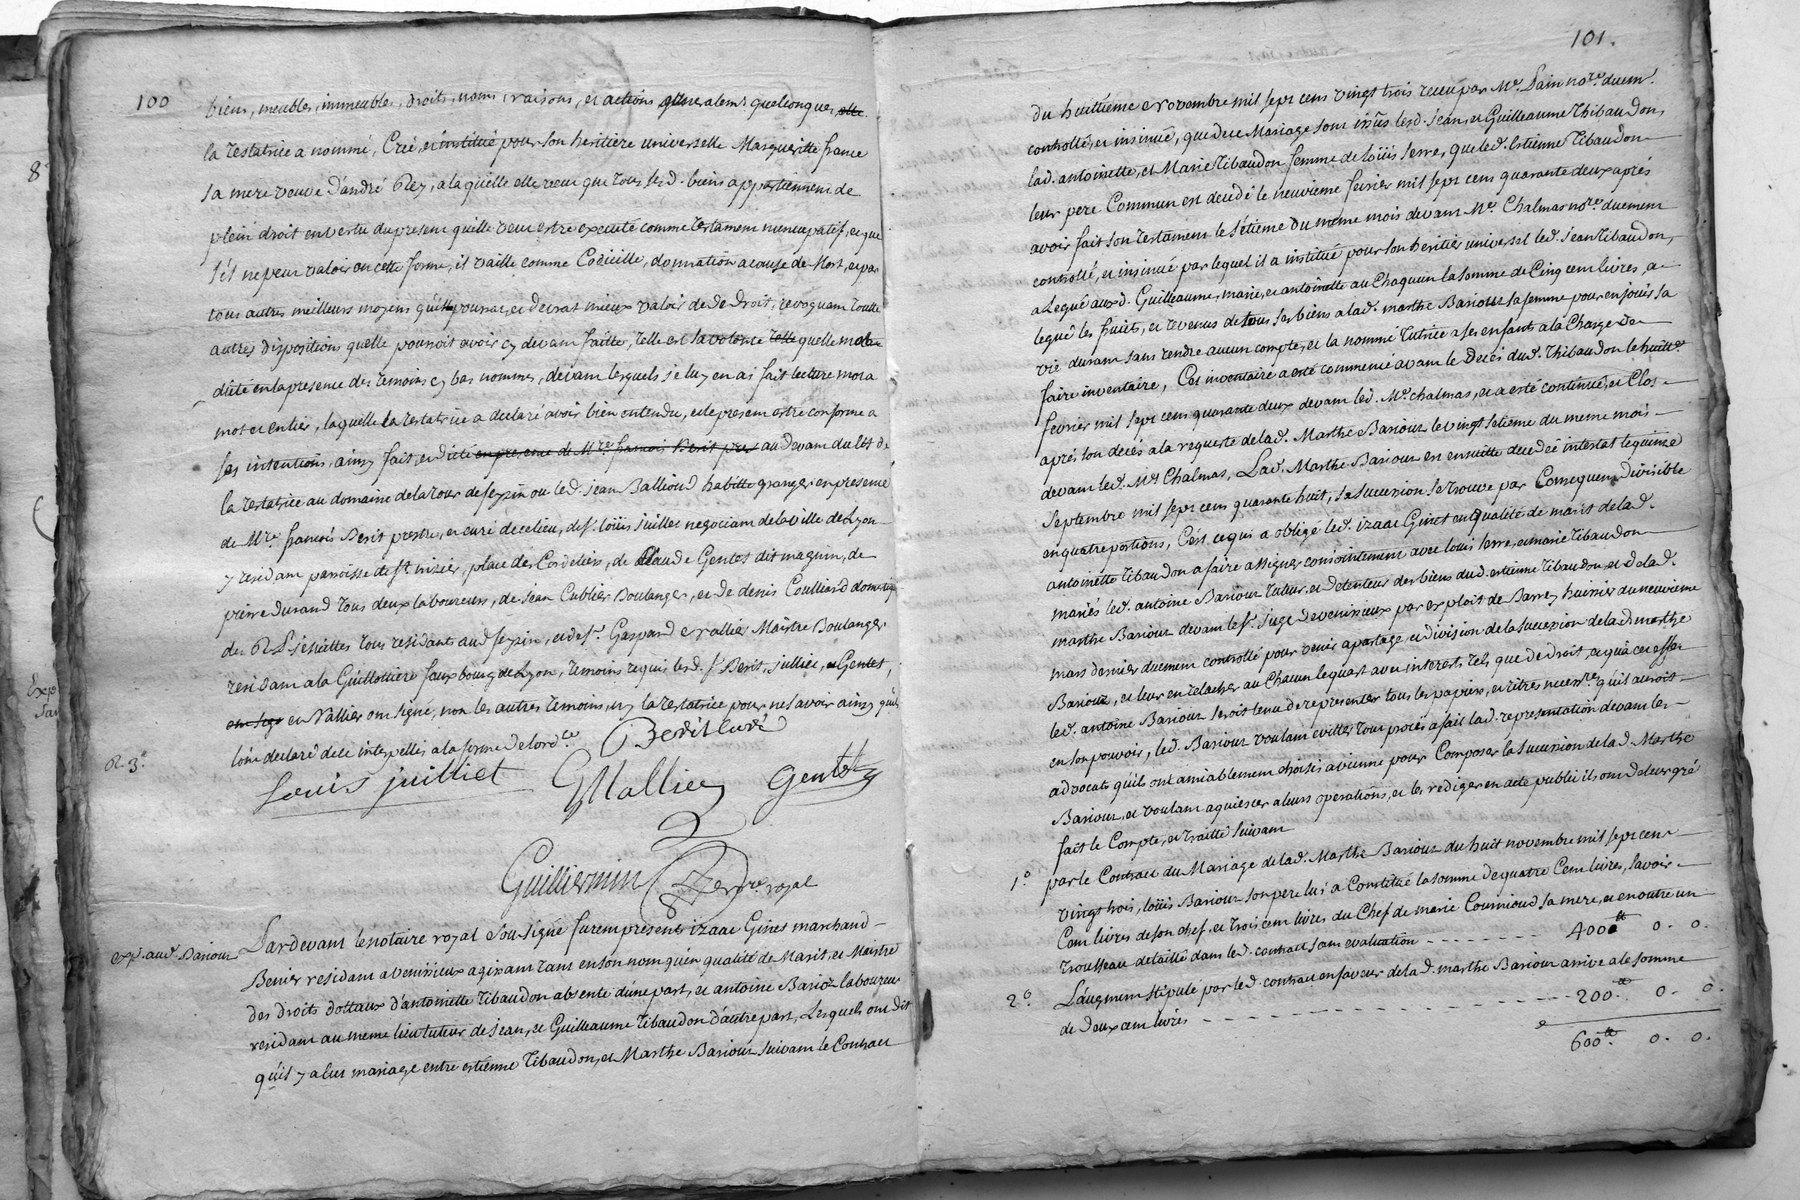 100
biens, meubles, immeubles, droits, noms, raisons, et actions generalemt quelconques,
la testatrice a nommé, Créé, et institué pour son heritière universelle Margueritte france
sa mere veuve d'andré Rey, a laquelle elle veut que tous sesd. biens appartiennent de
plein droit en vertu du present quelle veut estre executé comme testament nuncupatif, et que
s'il ne peut valoir en cette forme, il vaille comme Codicille, donnation a cause de Mort, et par
tous autres meilleurs moyens qu'il pourrat, et devrat mieux valoir de de droit, revoquant toutte
autres dispositions quelle pourroit avoir cy devant faitte, telle est sa volonté telle quelle m'ola
ditte en la presence des temoins cy bas nommés, devant lesquels je luy en ai fait lecture mot a
mot et entier, laquelle la testatrice a declaré avoir bien entendu, et le present estre conforme a
ses intentions, ainsy fait, et dicté en presence de Mre francois Berit pres au devant du lit de
la testatrice au domaine de la tour de feyzin ou led. jean Ballioud habitte granger en presence
de Mre francois Berit prestre, et curé de ce lieu, de sr. loüis juillet negociant de la ville de Lyon
y residant paroisse de st nizier, place des Cordeliers, de Claude Gentet dit magnin, de
pierre durand tous deux laboureurs, de jean Cublier Boulanger, et de denis Coulliard domestique
des R P Jesuittes tous residants aud feyzin, et de sr. Gaspard Nallier Maistre Boulanger
residant a la Guillottiere faux bourg de Lyon, temoins requis lesd. sr Berit, juillet, et Gentet,
ont signé et Nallier ont signé, non les autres temoins, ny la testatrice pour ne scavoir ainsy qu'ils
l'ont declaré de ce interpellés a la forme de l'ordce
R. 3.
Berit curé
Louis juilliet GNallier Gentet
Guilliermin Nore royal
exp. aud. Bariouz
Pardevant le notaire royal Sousigné furent presents izaac Ginet marchand
Benier residant a venissieux agissant tant en son nom qu'en qualité de Marit, et Maistre
des droits dottaux d'antoinette Tibaudon absente d'une part, et antoine Barioz laboureur
residant au meme lieu tuteur de jean, et Guilleaume Tibaudon d'autre part, Lesquels ont dit
qu'il y a eut mariage entre estienne Tibaudon, et Marthe Bariouz suivant le Contract
101.
du huittieme Novembre mil sept cens vingt trois receu par Me. Pain nore duemt.
controllé, et insinué, que de ce Mariage sont issus lesd. jean, et Guilleaume Thibaudon,
lad. antoinette, et Marie Tibaudon femme de loüis Serre, que led. Estienne Tibaudon
leur pere Commun est decedé le neuvieme fevrier mil sept cens quarante deux aprés
avoir fait son testament le setieme du meme mois devant Me. Chalmas nore duement
controllé, et insinué par lequel il a institué pour son heritier universel led. jean Tibaudon,
a legué auxd. Guilleaume, marie, et antoinette au Chaqu'un la somme de Cinq cent livres, a
legué les fruits, et revenus de tous ses biens a lad. marthe Bariouz sa femme pour en jouir sa
vie durant sans rendre aucun compte, et la nommé Tutrice a ses enfants a la Charge de
faire inventaire, Cet inventaire a esté commencé avant le Decés dud. Thibaudon le huitte
fevrier mil sept cens quarante deux devant led. Me. chalmas, et a esté continué, et Clos
aprés son decés a la requeste de lad. Marthe Bariouz le vingt setieme du meme mois
devant led. Me Chalmas, Lad. Marthe Bariouz est ensuitte decedée intestat le quinze
septembre mil sept cens quarante huit, sa succession se trouve par Consequent divisible
en quatre portions, C'est ce qui a obligé led. izaac Ginet en qualité de marit de lad.
antoinette Tibaudon a faire assigner conjointement avec loüis Serre, et marie Tibaudon
mariés led. antoine Bariouz tuteur, et detenteur des biens dud. estienne Tibaudon, et de lad.
marthe Bariouz devant le sr. juge de venissieux par exploit de Barre, huissier du neuvieme
mars dernier duement controllé pour venir a partage et division de la succession de lad marthe
Bariouz, et leur en relacher au Chacun le quart avec interests tels que de droit, et qu'a cet effet
led. antoine Bariouz seroit tenu de representer tous les papiers, et titres necessres qu'il auroit
en son pouvoir, led. Bariouz voulant evitter tout procés a fait lad. representation devant les
advocats qu'ils ont amiablement choisis a vienne pour Composer la succession de lad. Marthe
Bariouz, et voulant aquiescer a leurs operations, et les rediger en acte public ils ont de leur gré
fait le Compte, et traitté suivant
1.° par le Contract du Mariage de lad. Marthe Bariouz du huit novembre mil sept cens
vingt trois, loüis Bariouz son pere lui a Constitué la somme de quatre Cent livres, savoir
Cent livres de son chef, et trois cent livres du Chef de marie Cournioud sa mere, et en outre un
trousseau detaillé dans led. contract sans evaluation - - - - - - - - 400tt 0. 0.
2.° L'augment stipulé par led. contract en faveur de lad. marthe Bariouz arrive a la somme
de deux cent livres - - - - - - - - - - - - - - - - 200tt 0. 0.
600tt 0. 0.